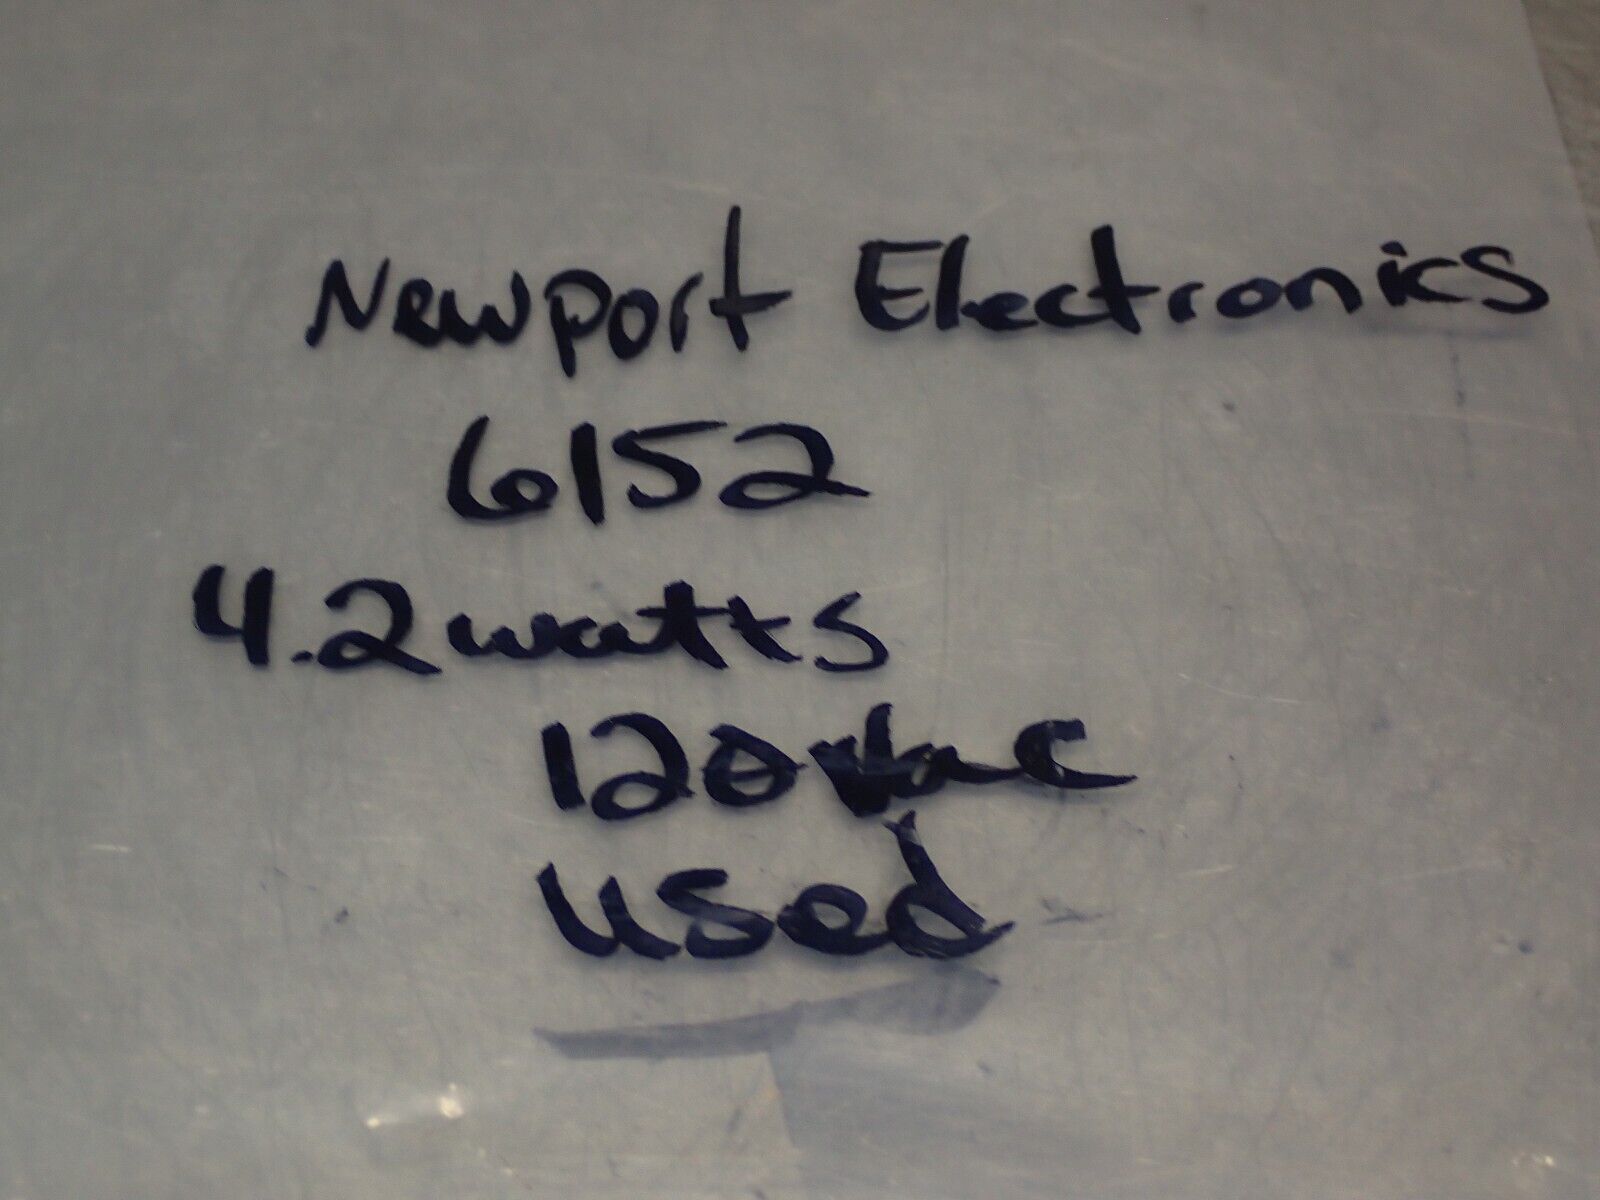 Newport Electronics
6152
4.2 watts
120 vac
used